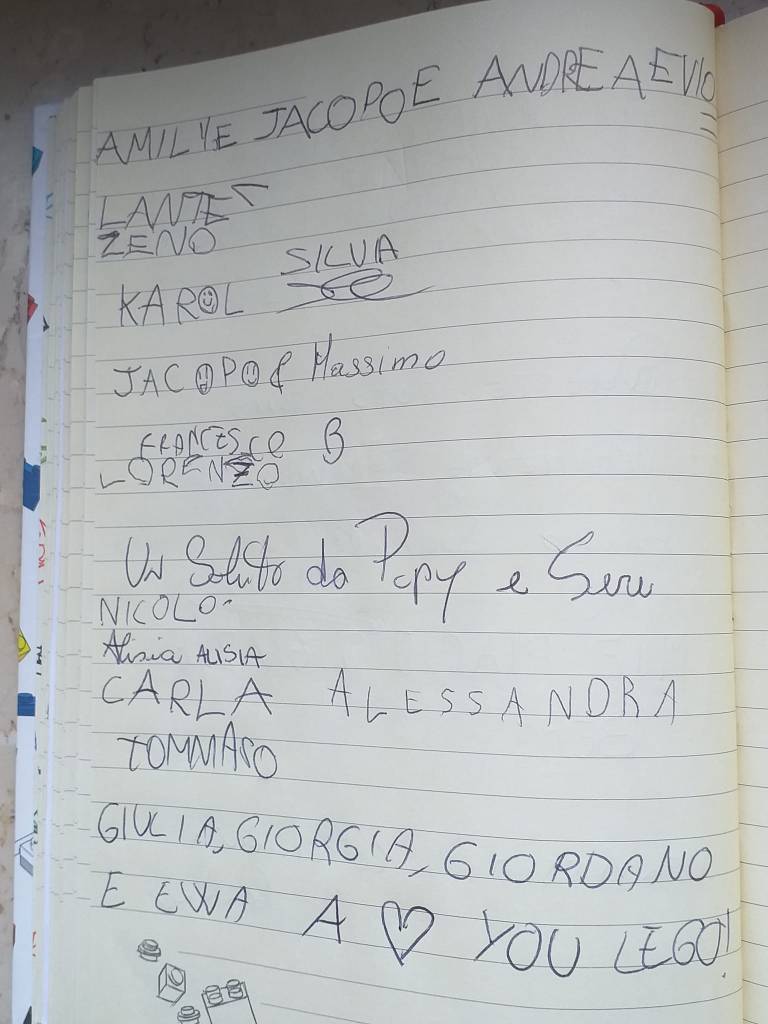 AMILYE JACOPO E ANDREA E VIO
LANTE
ZENO
SILVIA
KAROL
JACOPO & Massimo
FRANCESCO B
LORENZO
Un Saluto da Pepy e Seru
NICOLO'
Alisia ALISIA
CARLA ALESSANDRA
TOMMASO
GIULIA, GIORGIA, GIORDANO
E EWA A ♡ YOU LEGO!